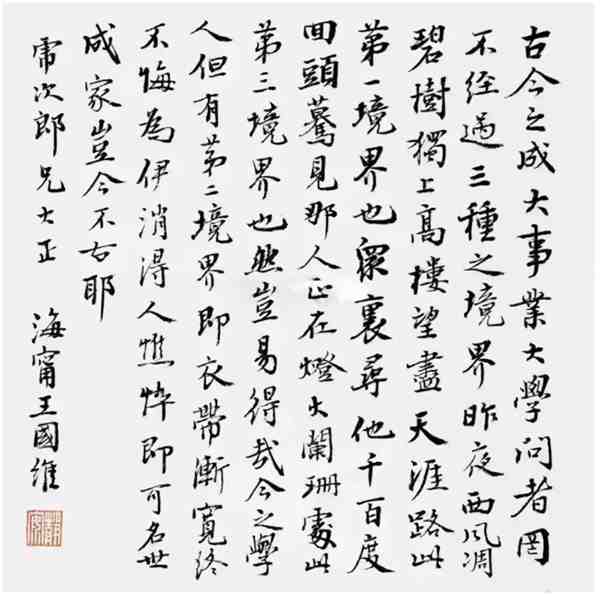 古今之成大事業大學问者罔
不經過三種之境界昨夜西風凋
碧樹獨上高樓望盡天涯路此
第一境界也眾裏尋他千百度
回頭驀見那人正在燈火闌珊處此
第三境界也然豈易得哉今之學
人但有第二境界即衣帶漸寬終
不悔為伊消得人憔悴即可名世
成家豈今不古耶
次郎兄大正
海甯王國維